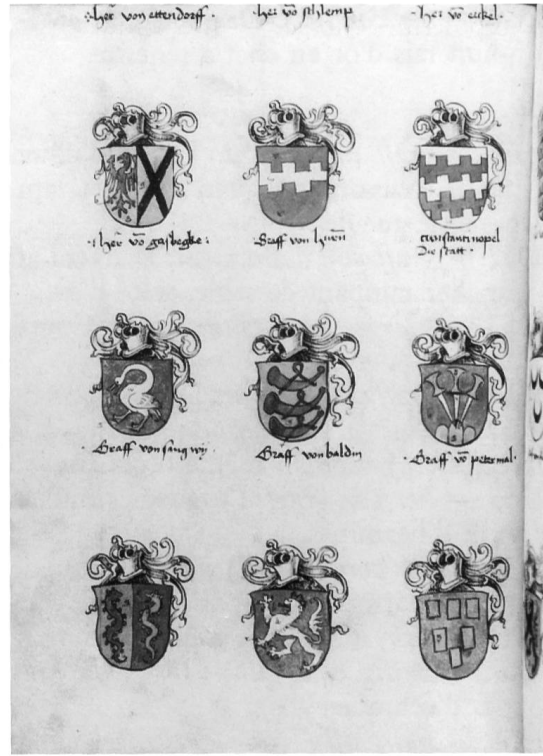 her von ettendorff · her vō schlemp her vō eckel
her vō gasbegke : Graff von constantinopel
die statt
Graff von sang wij Graff von baldin Graff vō petermal